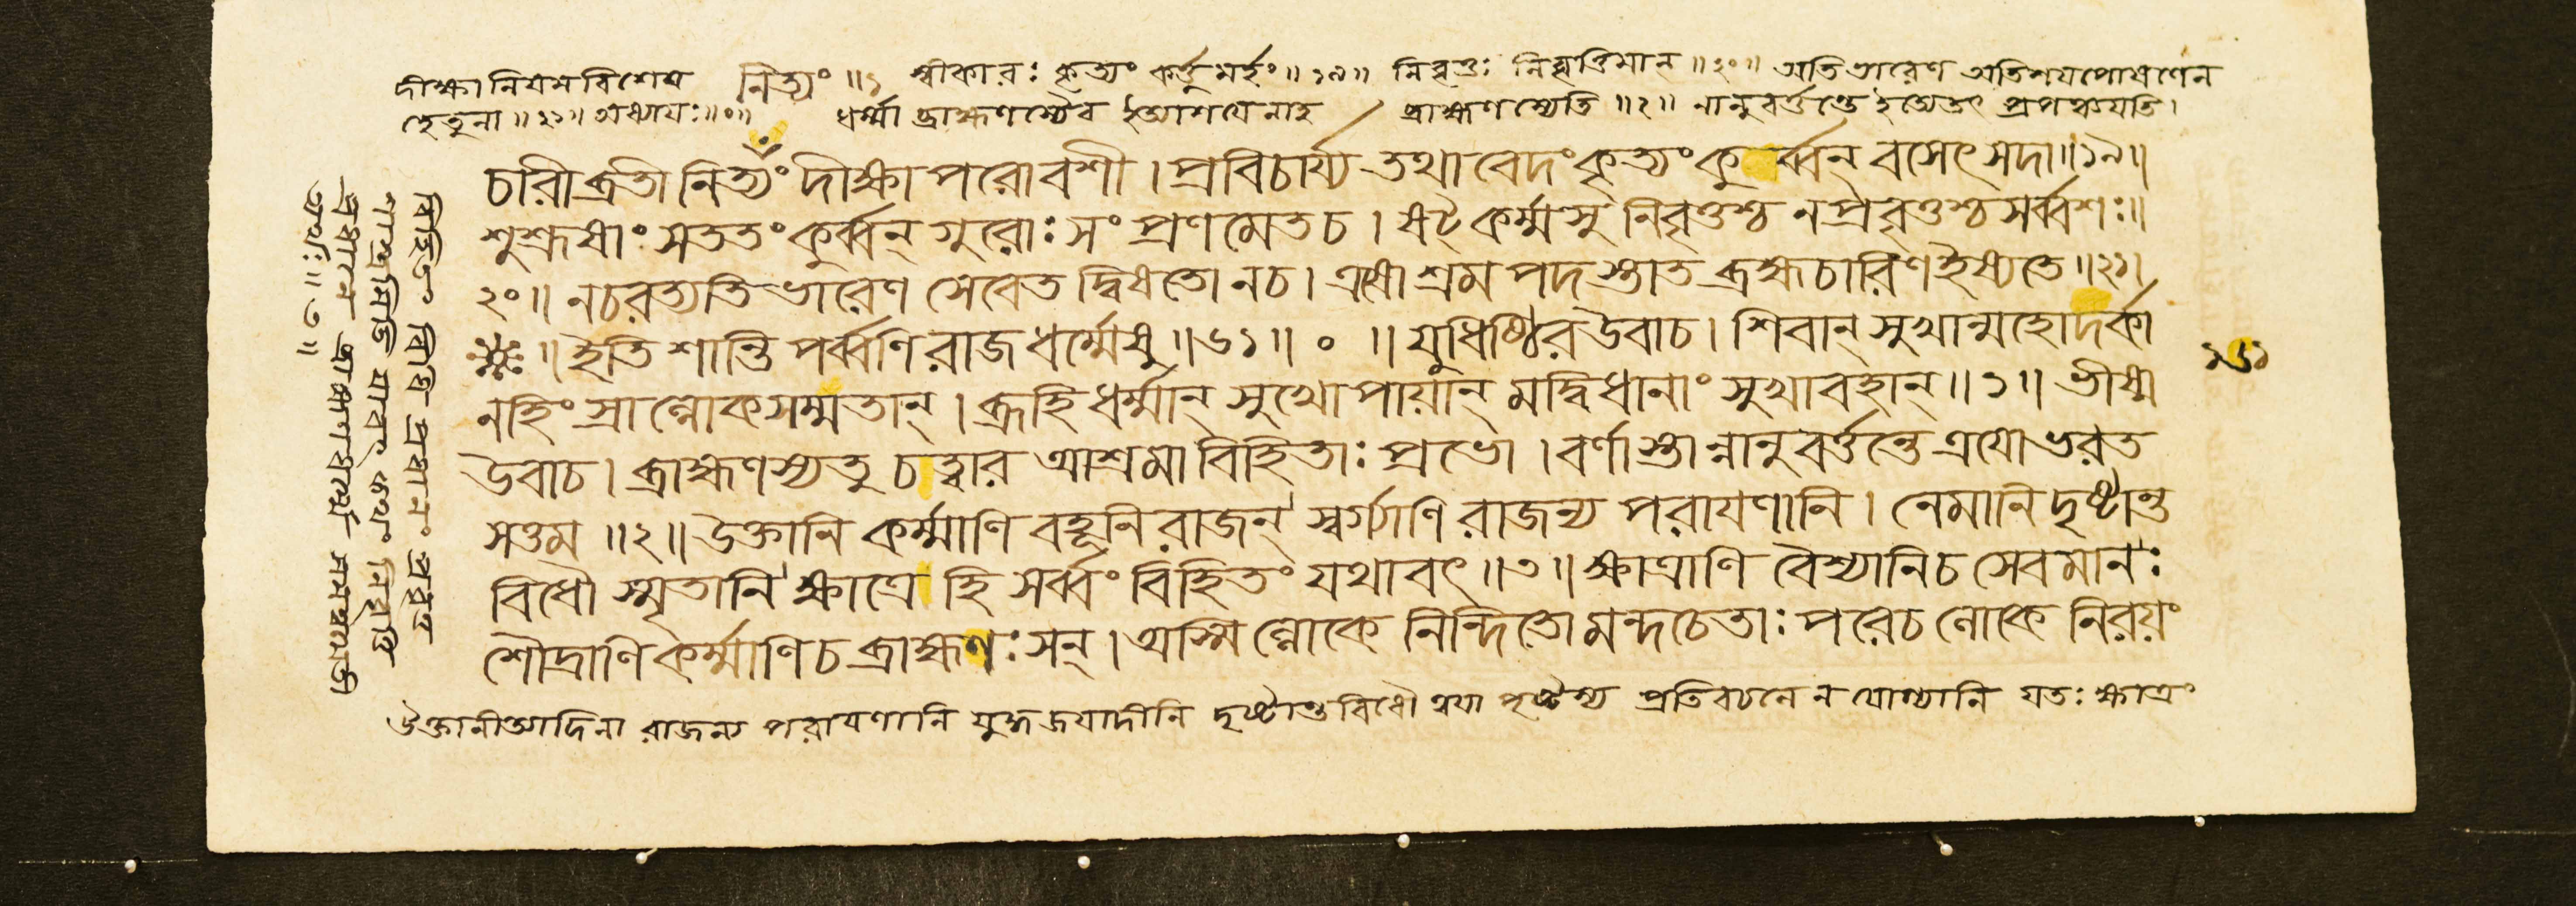 দীক্ষা নিয়মবিশেষ নিত্যং ॥১ স্বীকারঃ কৃত্যং কর্ত্তুমর্হং ॥১৯॥ নিবৃত্তঃ নিবৃত্তিমান্ ॥২০॥ অতিভারেণ অতিশয়পোষণেন
হেতুনা ॥২১॥ অধ্যায়ঃ ॥০॥ ধর্ম্মা ব্রাহ্মণস্যৈব ইত্যাশয়েনাহ ব্রাহ্মণস্যেতি ॥২॥ নানুবর্ত্তন্তে ইত্যেতৎ প্রপঞ্চয়তি।
চারী ব্রতী নিত্যং দীক্ষাপরো বশী। প্রবিচার্য্য তথা বেদং কৃত্যং কুর্ব্বন্ বসেৎ সদা॥১৯॥
শুশ্রূষাং সততং কুর্ব্বন্ গুরোঃ সংপ্রণমেত চ। ষট্কর্ম্মসু নিবৃত্তশ্চ ন প্রবৃত্তশ্চ সর্ব্বশঃ॥
২০॥ ন চরত্যতিভারেণ সেবেত দ্বিষতো ন চ। এষোশ্রমপদস্তাত ব্রহ্মচারিণ ইষ্যতে॥২১।
॥ ইতি শান্তিপর্ব্বণি রাজধর্ম্মেষু॥৬১॥ ০ ॥ যুধিষ্ঠির উবাচ। শিবান্ সুখান্মহোদর্কা
নহিংস্রাল্লোকসম্মতান্। ব্রূহি ধর্ম্মান্ সুখোপায়ান্ মদ্বিধানাং সুখাবহান্॥১॥ ভীষ্ম
উবাচ। ব্রাহ্মণস্য তু চত্বার আশ্রমা বিহিতাঃ প্রভো। বর্ণাস্তান্নানুবর্ত্তন্তে ত্রয়ো ভরত
সত্তম॥২॥ উক্তানি কর্ম্মাণি বহূনি রাজন্ স্বর্গ্যাণি রাজন্য পরায়ণানি। নেমানি দৃষ্টান্ত
বিধৌ স্মৃতানি ক্ষাত্রে হি সর্ব্বং বিহিতং যথাবৎ॥৩॥ ক্ষাত্রাণি বৈশ্যানি চ সেবমানঃ
শৌদ্রাণি কর্ম্মাণি চ ব্রাহ্মণঃ সন্। অস্মিল্লোকে নিন্দিতো মন্দচেতাঃ পরে চ লোকে নিরয়ং
উক্তানীত্যাদিনা রাজন্য পরায়ণানি যুদ্ধজয়াদীনি দৃষ্টান্তবিধৌ ত্বয়া পৃষ্টস্য প্রতিবচনে ন যোগ্যানি যতঃ ক্ষাত্রং
বিহিতং বিধি প্রধানং